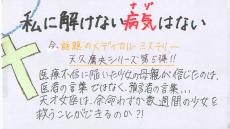 私に解けない病気はない
ナゾ
今、話題のメディカルミステリー
天久鷹央シリーズ第5弾!!
医療不信に陥いた少女の母親が信じたのは、
医者の言葉ではなく、預言者の言葉…
天才女医は、余命わずか数週間の少女を
救うことができるのか?!